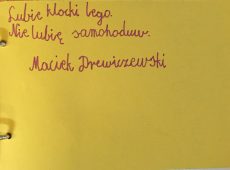 Lubię klocki lego.
Nie lubię samohoduw.
Maciek Drewiczewski